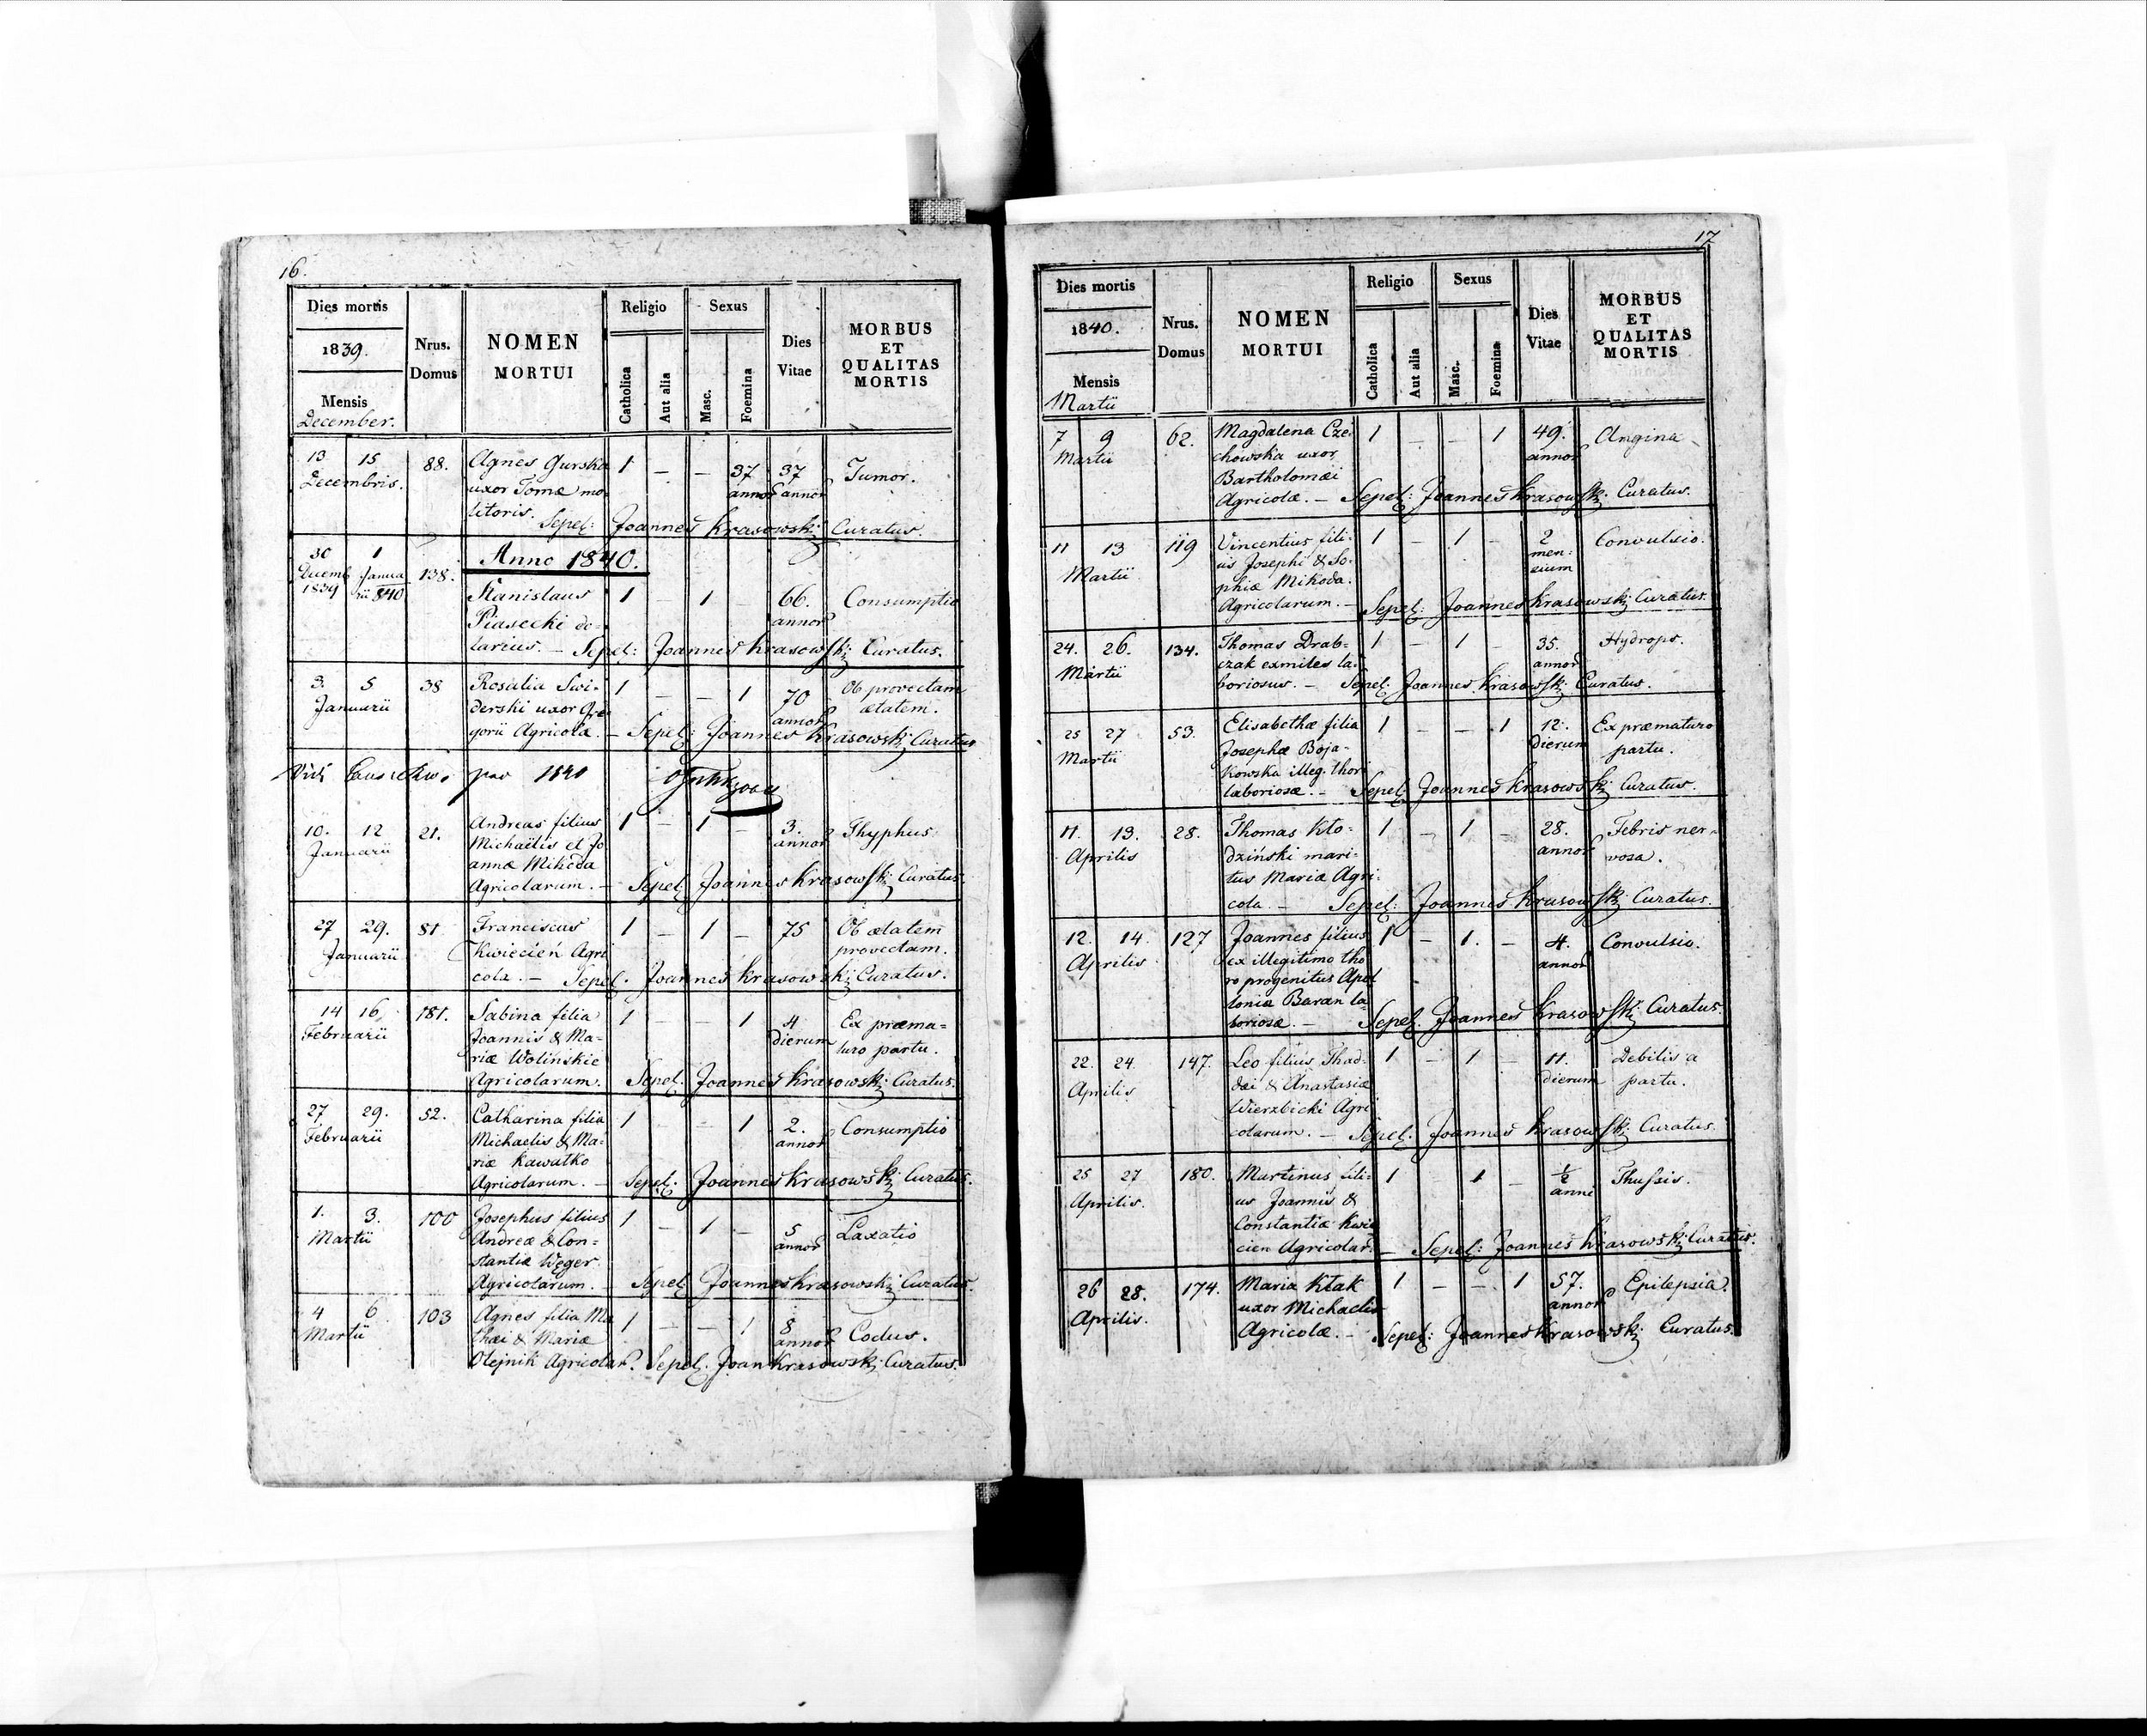 16.
Dies mortis
1839.
Mensis
December.
Nrus.
Domus
NOMEN
MORTUI
Religio
Catholica
Aut alia
Sexus
Masc.
Foemina
Dies
Vitae
MORBUS
ET
QUALITAS
MORTIS
13 15 88. Agnes Gurska 1 — — 37 37 Tumor.
Decembris. uxor Tomæ mo- annor annor
litoris. Sepel: Joannes Krasowski Curatus.
Anno 1840.
30 1 138.
Decemb Janua
1839 rii 840 Stanislaus 1 — 1 — 66. Consumptio
Piasecki do- annor
larius. — Sepel: Joannes Krasowski Curatus.
3 5 38 Rosalia Swi- 1 — — 1 70 Ob provectam
Januarii derski uxor Gre- annor ætatem.
gorii Agricolæ. — Sepel: Joannes Krasowski Curatus
pro 1840
10. 12 21. Andreas filius 1 — 1 — 3. Thyphus
Januarii Michaëlis et Jo annor
annæ Mikoda
Agricolarum. — Sepel Joannes Krasowski Curatus.
27 29. 81 Franciscus 1 — 1 — 75 Ob ætatem
Januarii Kwiecień Agri provectam.
cola. — Sepel. Joannes Krasowski Curatus.
14 16, 181. Sabina filia 1 — — 1 4 Ex præma-
Februarii Joannis & Ma- dierum turo partu.
riæ Wolinskie
Agricolarum. Sepel. Joannes Krasowski Curatus.
27 29. 52. Catharina filia 1 — — 1 2. Consumptio
Februarii Michaelis & Ma- annor
riæ Kawatko
Agricolarum. — Sepel. Joannes Krasowski Curatus.
1. 3. 100 Josephus filius 1 — 1 — 5 Laxatio
Martii Andreæ & Con- annor
stantiæ Węger
Agricolarum. — Sepel Joannes Krasowski Curatus.
4 6 103 Agnes filia Ma 1 — — 1 8 Codus.
Martii thæi & Mariæ annor
Olejnik Agricolar. Sepel. Joan Krasowski Curatus.
17
Dies mortis
1840.
Mensis
Martii
Nrus.
Domus
NOMEN
MORTUI
Religio
Catholica
Aut alia
Sexus
Masc.
Foemina
Dies
Vitae
MORBUS
ET
QUALITAS
MORTIS
7 9 62. Magdalena Cze- 1 — — 1 49. Angina
Martii chowska uxor annor
Bartholomæi
Agricolæ. — Sepel: Joannes Krasowski. Curatus.
11 13 119 Vincentius fili- 1 — 1 — 2 Convulsio.
Martii us Josephi & So- men-
phiæ Mikoda. sium
Agricolarum. — Sepel: Joannes Krasowski Curatus.
24. 26. 134. Thomas Drab- 1 — 1 — 35. Hydrops.
Martii czak exmiles la- annor
boriosus. — Sepel: Joannes Krasowski Curatus.
25 27 53. Elisabethæ filia 1 — — 1 12. Ex præmaturo
Martii Josephæ Boja- dierum partu.
kowska illeg. thori
laboriosæ. — Sepel: Joannes Krasowski Curatus.
11. 13. 28. Thomas Kło- 1 — 1 — 28. Febris ner-
Aprilis dziński mari- annor vosa.
tus Mariæ Agri-
cola. — Sepel: Joannes Krasowski Curatus.
12. 14. 127 Joannes filius 1 — 1. — 4. Convulsio.
Aprilis ex illegitimo tho annor
ro progenitus Apol
lonia Baran la
boriosæ. — Sepel. Joannes Krasowski Curatus.
22. 24. 147. Leo filius Thad- 1 — 1 — 11. Debilis a
Aprilis dæi & Anastasiæ dierum partu.
Wierzbicki Agri
colarum. — Sepel. Joannes Krasowski Curatus.
25 27 180. Martinus fili- 1 — 1 — ½ Thussis.
Aprilis. us Joannis & anni
Constantiæ Kwie
cien Agricolar. — Sepel: Joannes Krasowski Curatus.
26 28. 174. Maria Kłak 1 — — 1 57. Epilepsia.
Aprilis. uxor Michaelis annor
Agricolæ. — Sepel: Joannes Krasowski Curatus.